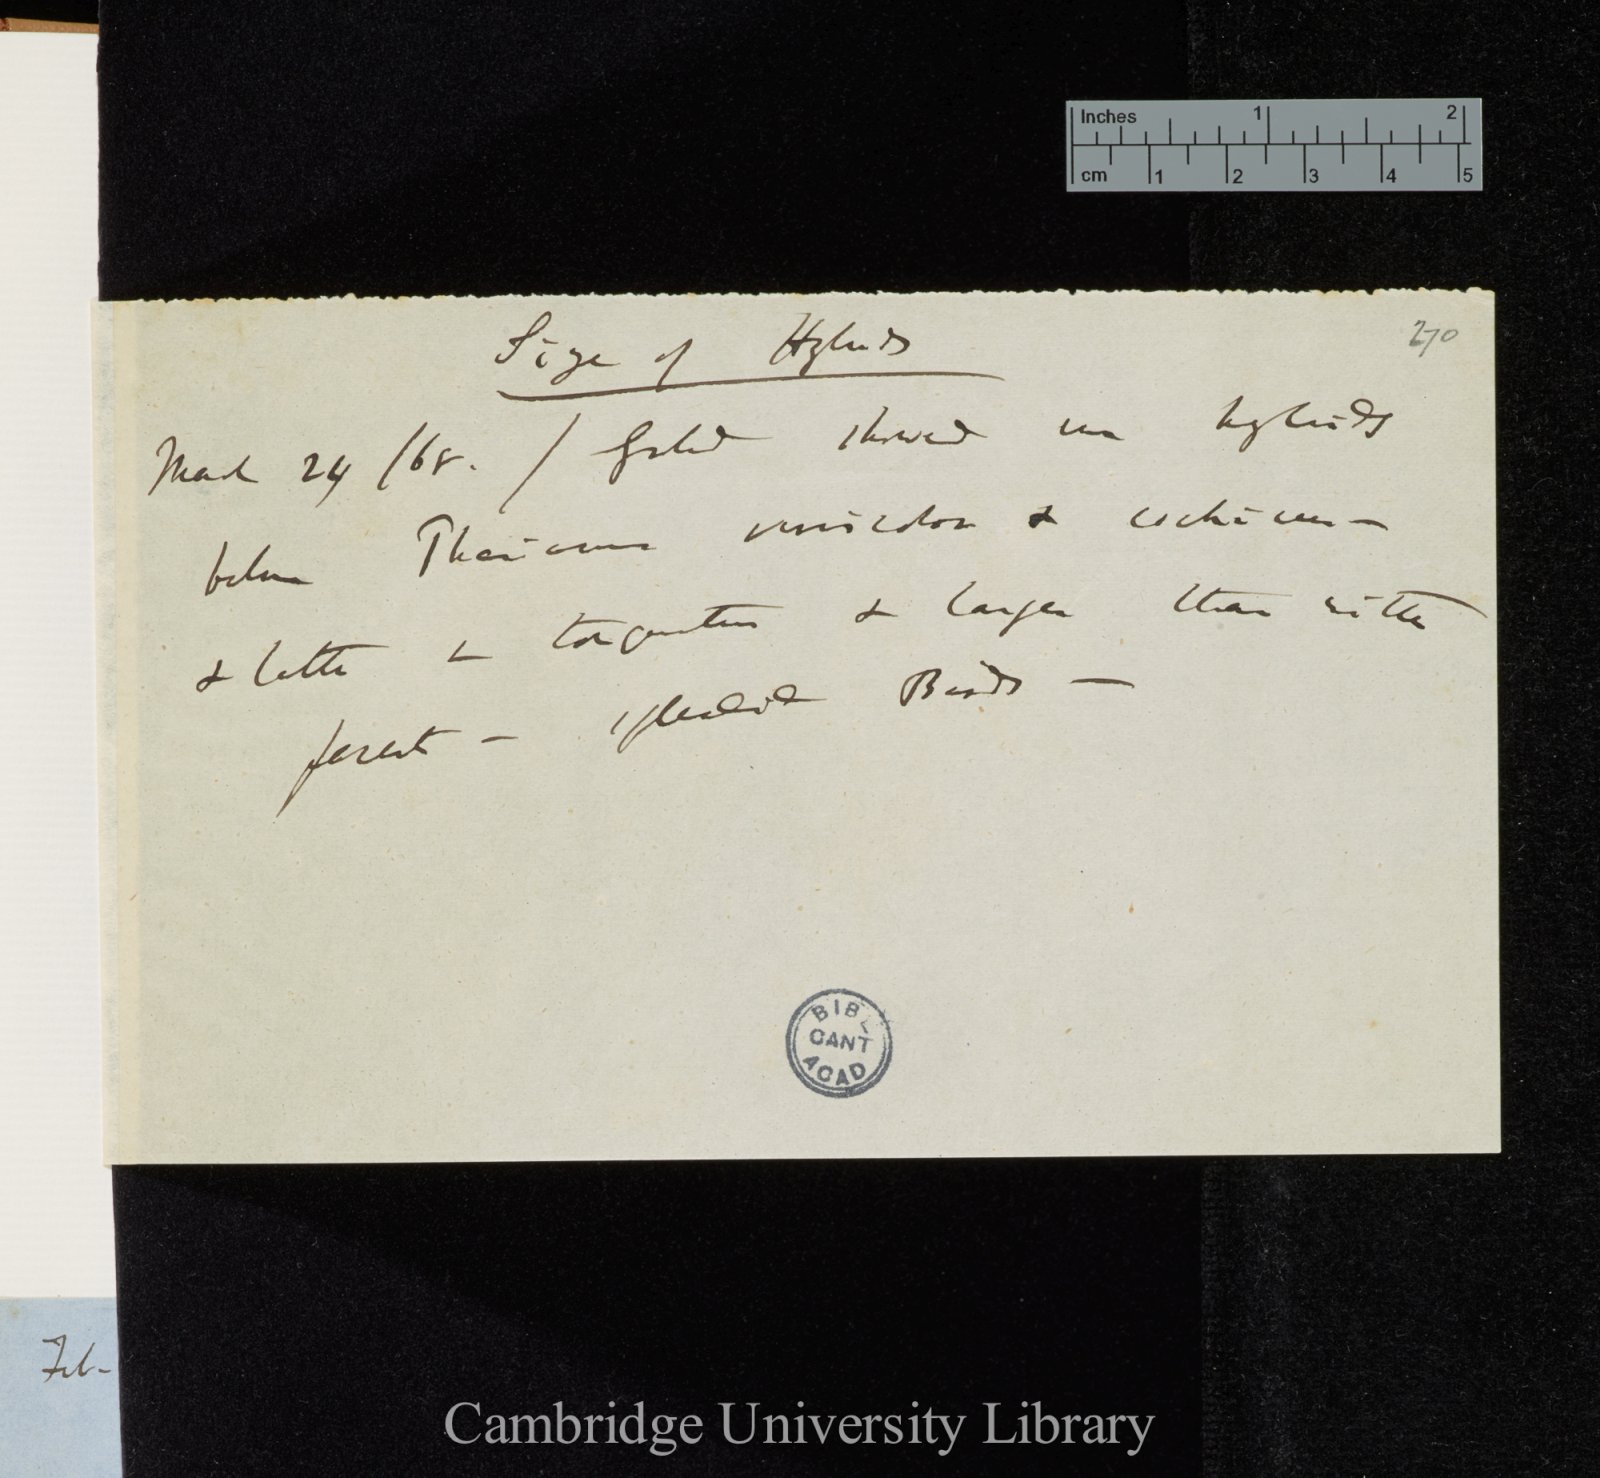 Inches 1 2
cm 1 2 3 4 5
270
Size of Hybrids
March 24 /68. / Gould showed me hybrids
between Phasianus versicolor &
& latter & torquatus & larger than either
parent — splendid Birds —
BIBL
CANT
ACAD
Feb-
Cambridge University Library